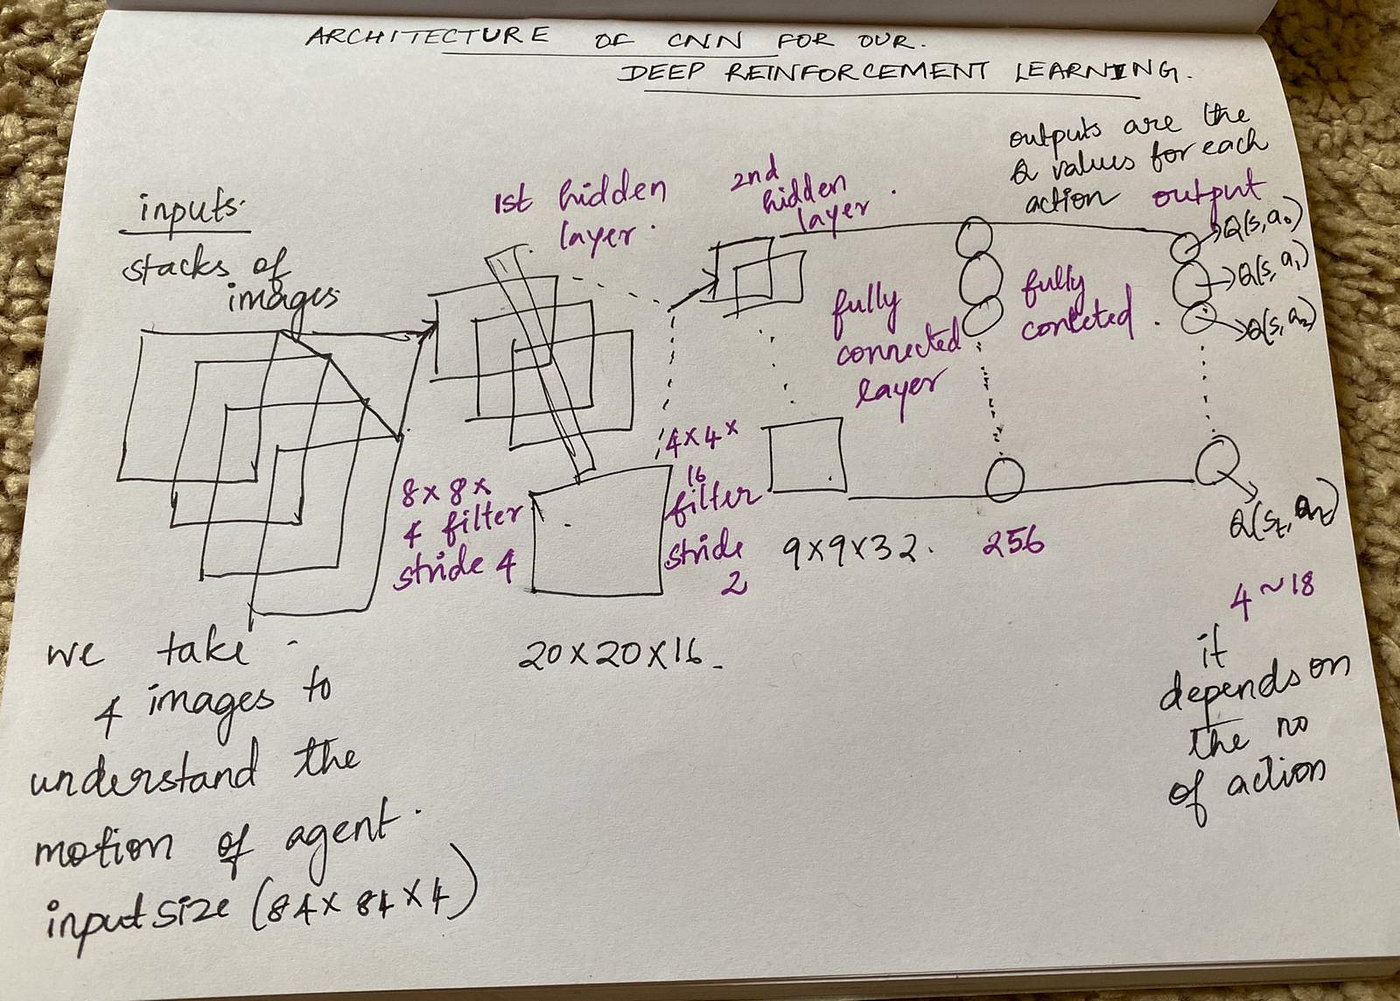 ARCHITECTURE OF CNN FOR OUR.
DEEP REINFORCEMENT LEARNING.
inputs.
stacks of
images
1st hidden
layer.
2nd
hidden
layer
outputs are the
Q values for each
action
output
Q(s,a0)
Q(s,a1)
Q(s,a2)
fully
connected
layer
fully
conteted.
8x8x
4 filter
stride 4
4x4x
16
filter
stride
2
9x9x32.
256
4~18
20x20x16
it
depends on
the no
of action
we take
4 images to
understand the
motion of agent.
input size (84x84x4)